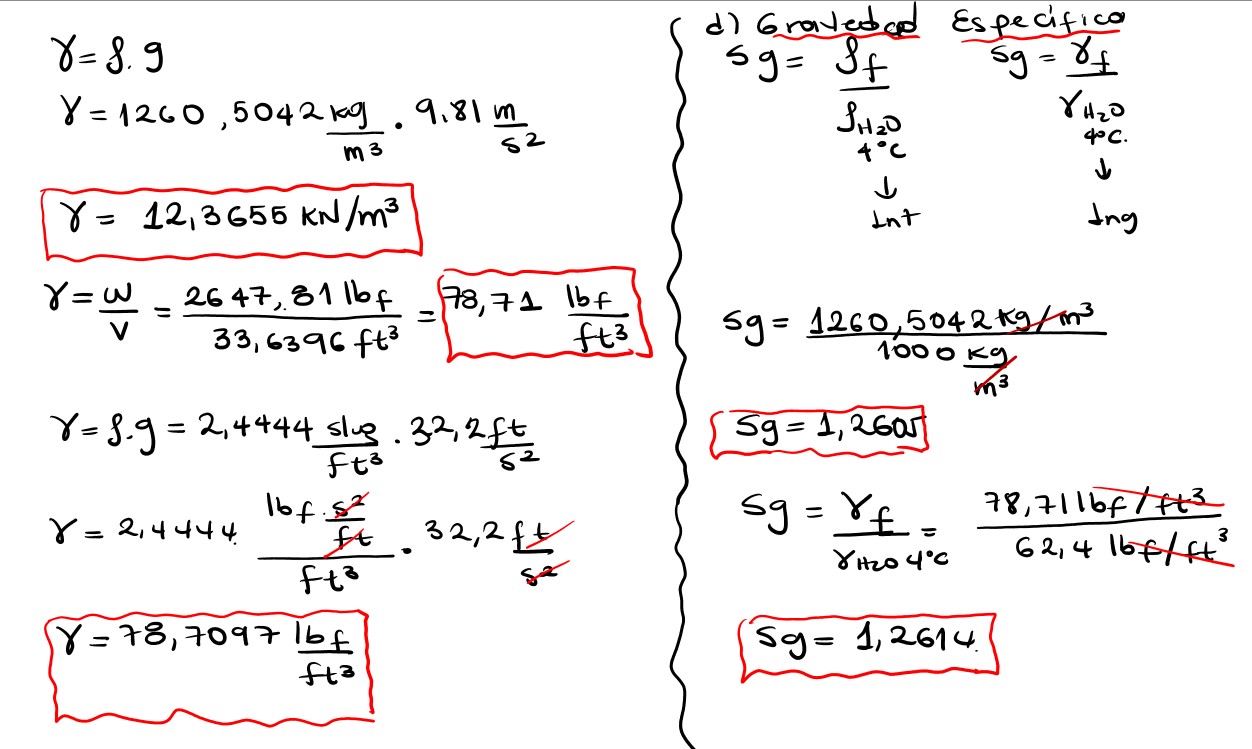 γ = ρ. g
γ = 1260,5042 kg/m³ . 9.81 m/s²
γ = 12,3655 KN/m³
γ = w/V = 2647,81 lbf / 33,6396 ft³ = 78,71 lbf/ft³
γ = ρ.g = 2,4444 slug/ft³ . 32,2 ft/s²
γ = 2,4444 (lbf.s²/ft)/ft³ . 32,2 ft/s²
γ = 78,7097 lbf/ft³
d) Gravedad Específica
Sg = ρf / ρH₂O 4°C
↓
Int
Sg = γf / γH₂O 4°C.
↓
Ing
Sg = 1260,5042 kg/m³ / 1000 kg/m³
Sg = 1,2605
Sg = γf / γH₂O 4°C = 78,71 lbf/ft³ / 62,4 lbf/ft³
Sg = 1,2614.